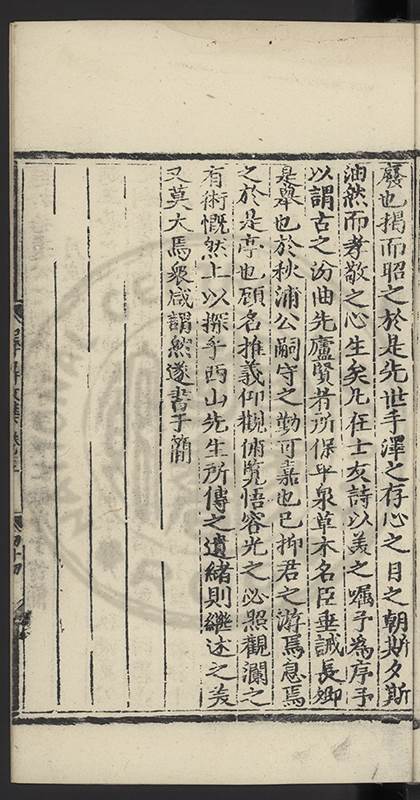 廢也揭而昭之於是先世手澤之存心之目之朝斯夕斯
油然而孝敬之心生矣凡在士友詩以美之囑予爲序予
以謂古之汾曲先廬賢者所保平泉草木名臣垂誡長卿
是舉也於秋浦公嗣守之勤可嘉也已抑君之游焉息焉
之於是亭也顧名推義仰觀俯覽悟容光之必照觀瀾之
有術慨然上以探乎西山先生所傳之遺緒則繼述之美
又莫大焉衆咸謂然遂書于簡